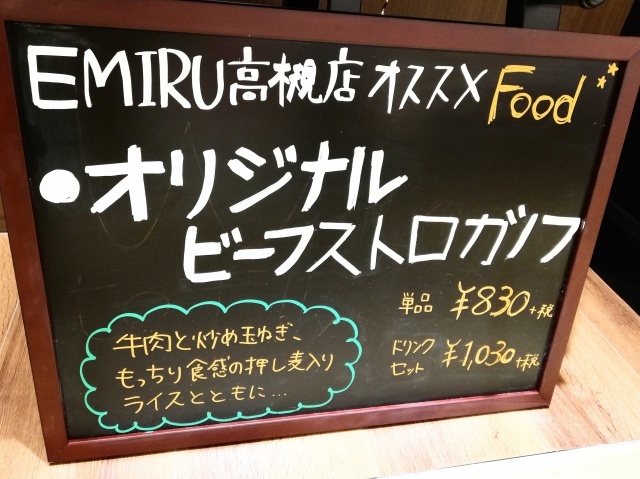 EMIRU高槻店 オススメ Food
・オリジナル
ビーフストロガノフ
単品 ¥830+税
ドリンク
セット ¥1,030+税
牛肉と炒め玉ねぎ、
もっちり食感の押し麦入り
ライスとともに…